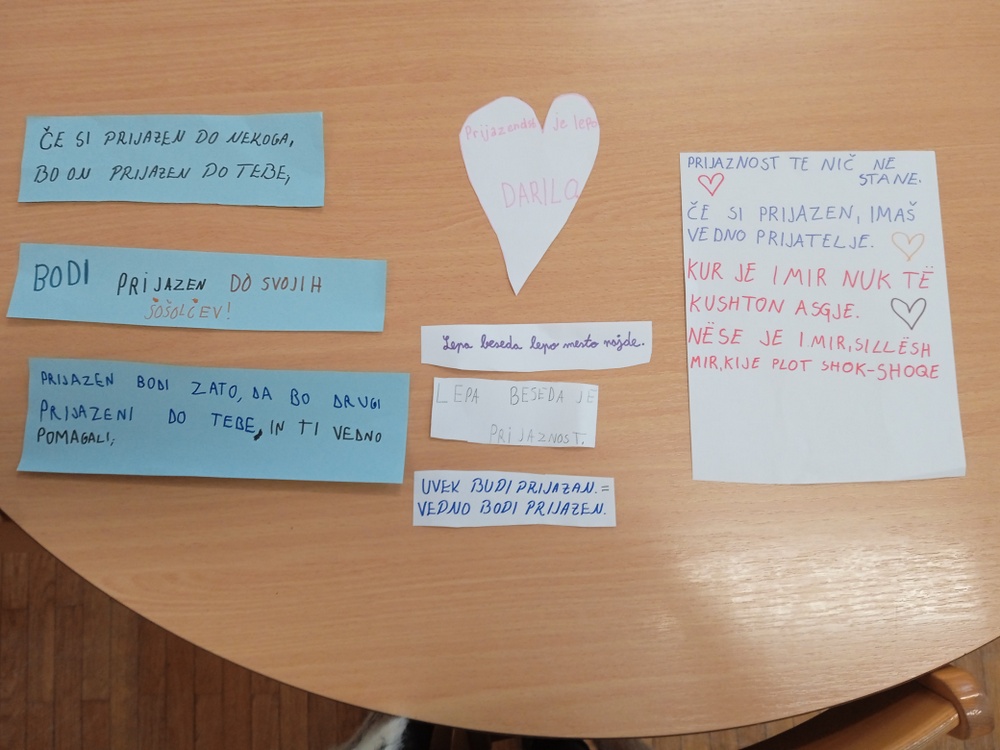 ČE SI PRIJAZEN DO NEKOGA,
BO ON PRIJAZEN DO TEBE,
BODI PRIJAZEN DO SVOJIH
SOŠOLCEV!
PRIJAZEN BODI ZATO, DA BO DRUGI
PRIJAZENI DO TEBE, IN TI VEDNO
POMAGALI,
Prijaznost je lepo
DARILO
Lepa beseda lepo mesto najde.
LEPA BESEDA JE
PRIJAZNOST.
UVEK BUDI PRIJAZAN. =
VEDNO BODI PRIJAZEN.
PRIJAZNOST TE NIČ NE
STANE.
ČE SI PRIJAZEN, IMAŠ
VEDNO PRIJATELJE.
KUR JE I MIR NUK TË
KUSHTON ASGJE.
NËSE JE I MIR, SILLËSH
MIR, KIJE PLOT SHOK-SHOQE